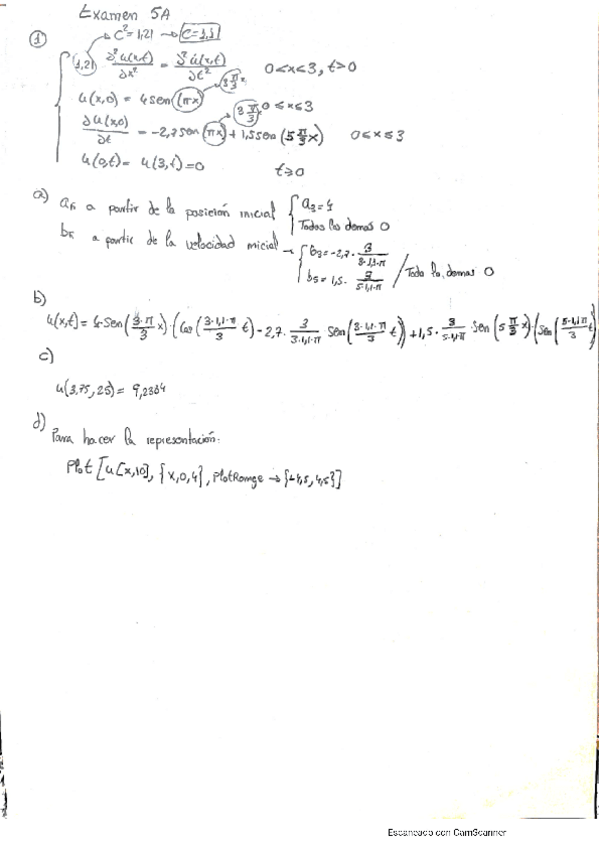 Examen 5A
① C² = 1,21 → C = 1,1
1,21 ∂²u(x,t)/∂x² = ∂²u(x,t)/∂t² 0<x<3, t>0
u(x,0) = 4 sen(πx) 3 π/3 x 0≤x≤3
∂u(x,0)/∂t = -2,7 sen(πx) + 1,5 sen(5 π/3 x) 3 π/3 x 0≤x≤3
u(0,t) = u(3,t) = 0 t≥0
a) a a partir de la posición inicial { a₃ = 4
Todos los demas 0
b a partir de la velocidad inicial → { b₃ = -2,7 · 3/(3·1,1·π)
b₅ = 1,5 · 3/(5·1,1·π) / Todo lo demas 0
b)
u(x,t) = 4 · Sen(3·π/3 x) · (Cos(3·1,1·π/3 t) - 2,7 · 3/(3·1,1·π) Sen(3·1,1·π/3 t)) + 1,5 · 3/(5·1,1·π) Sen(5 π/3 x) · (Sen(5·1,1·π/3 t)
c)
u(3.75, 25) =
d)
Para hacer la representación:
Plot[u[x,10], {x,0,4}, PlotRange → {-4,5, 4,5}]
Escaneado con CamScanner